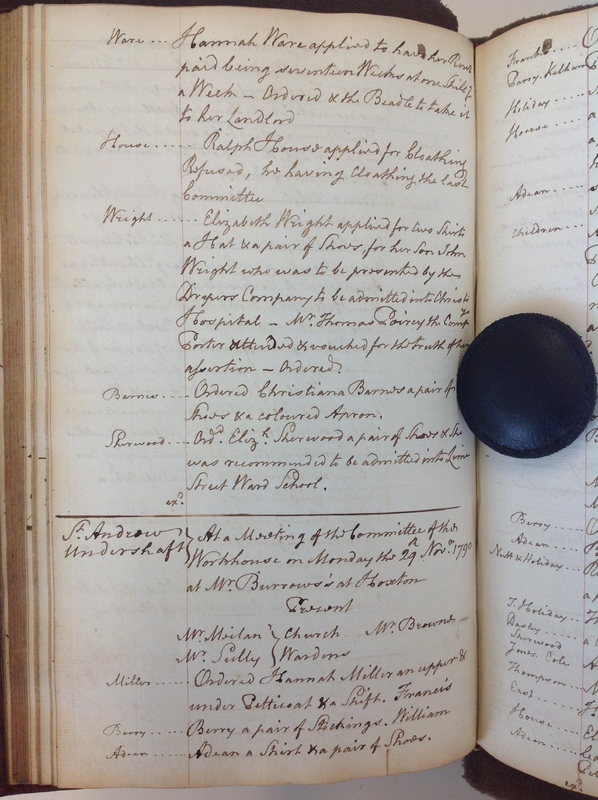 Ware ... Hannah Ware applied to have her Rent
paid being seventeen Weeks at one Shill.g
a Week - Ordered & the Beadle to take it
to her Landlord
House ..... Ralph House applied for Cloathing
Refused, he having Cloathing the last
Committee
Weight ..... Elizabeth Weight applied for two Shirts
a Hat & a pair of Shoes for her Son John
Weight who was to be presented by the
Drapers Company to be admitted into Christs
Hospital - Mr. Thomas the Comp.ys
Porter attended & vouched for the truth of her
assertion - Ordered
Barnes .... Ordered Christiana Barnes a pair of
Shoes & a coloured Apron.
Sherwood .... Ord.d Eliz.h Sherwood a pair of Shoes & She
was recommended to be admitted into Lime
Street Ward School.
ex.d
St. Andrew
Undershaft
At a Meeting of the Committee of the
Workhouse on Monday the 29.h Nov.r 1790
at Mr. Burrows's at Hoxton
Present
Mr. Meilan Church Mr. Browne
Mr. Sully Wardens
Miller ..... Ordered Hannah Miller an upper &
under Petticoat & a Shift. Francis
Berry .... Berry a pair of Stockings. William
Adean .... Adean a Shirt & a pair of Shoes.
Frank
Parry. Kelham
Holiday ....
House ....
Adean ....
Children ....
Berry ....
Adean ....
Nutt & Holiday
T. Holiday ..
Sherwood
Jones. Cole
Thompson ..
East ....
House ....
Adean ....
ex.d